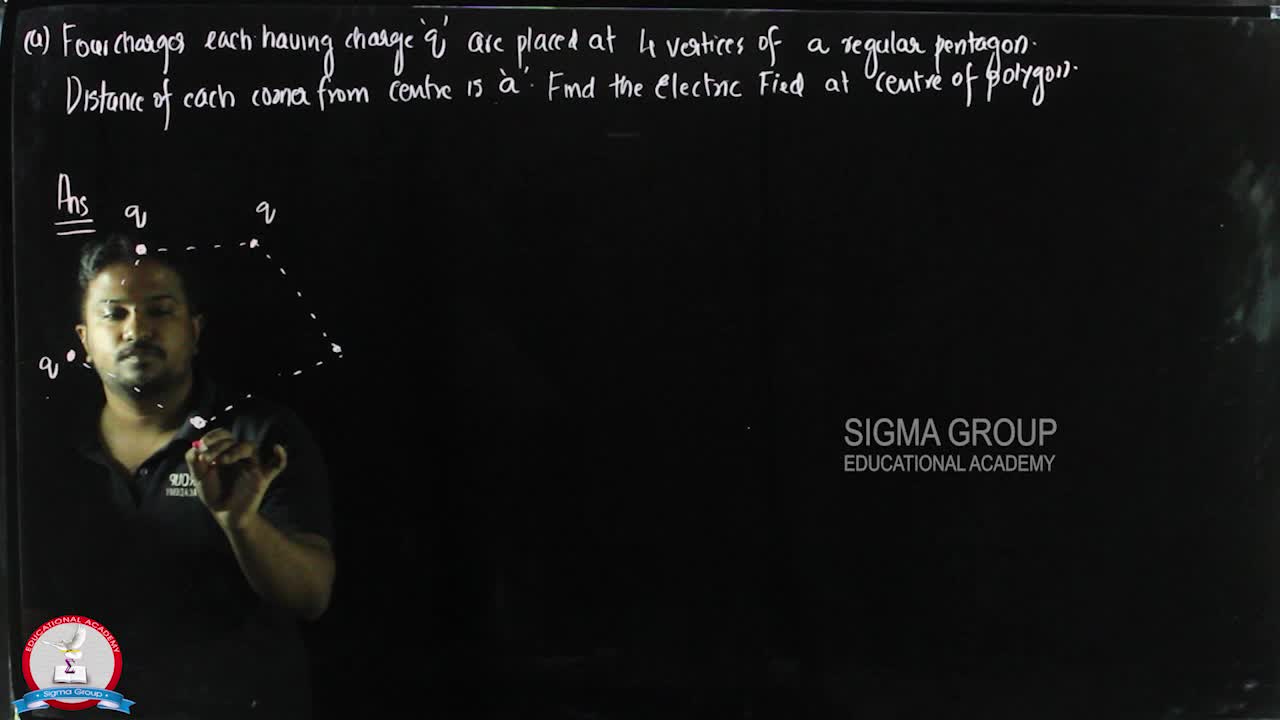 (Q) Four charges each having charge 'q' are placed at 4 vertices of a regular pentagon.
Distance of each corner from centre is 'a'. Find the Electric Fied at centre of polygon.
Ans
q
q
q
SIGMA GROUP
EDUCATIONAL ACADEMY
EDUCATIONAL ACADEMY
Σ
Sigma Group